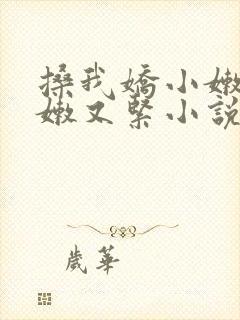 搡我嬌小嫩
嫩又緊小說
歲華